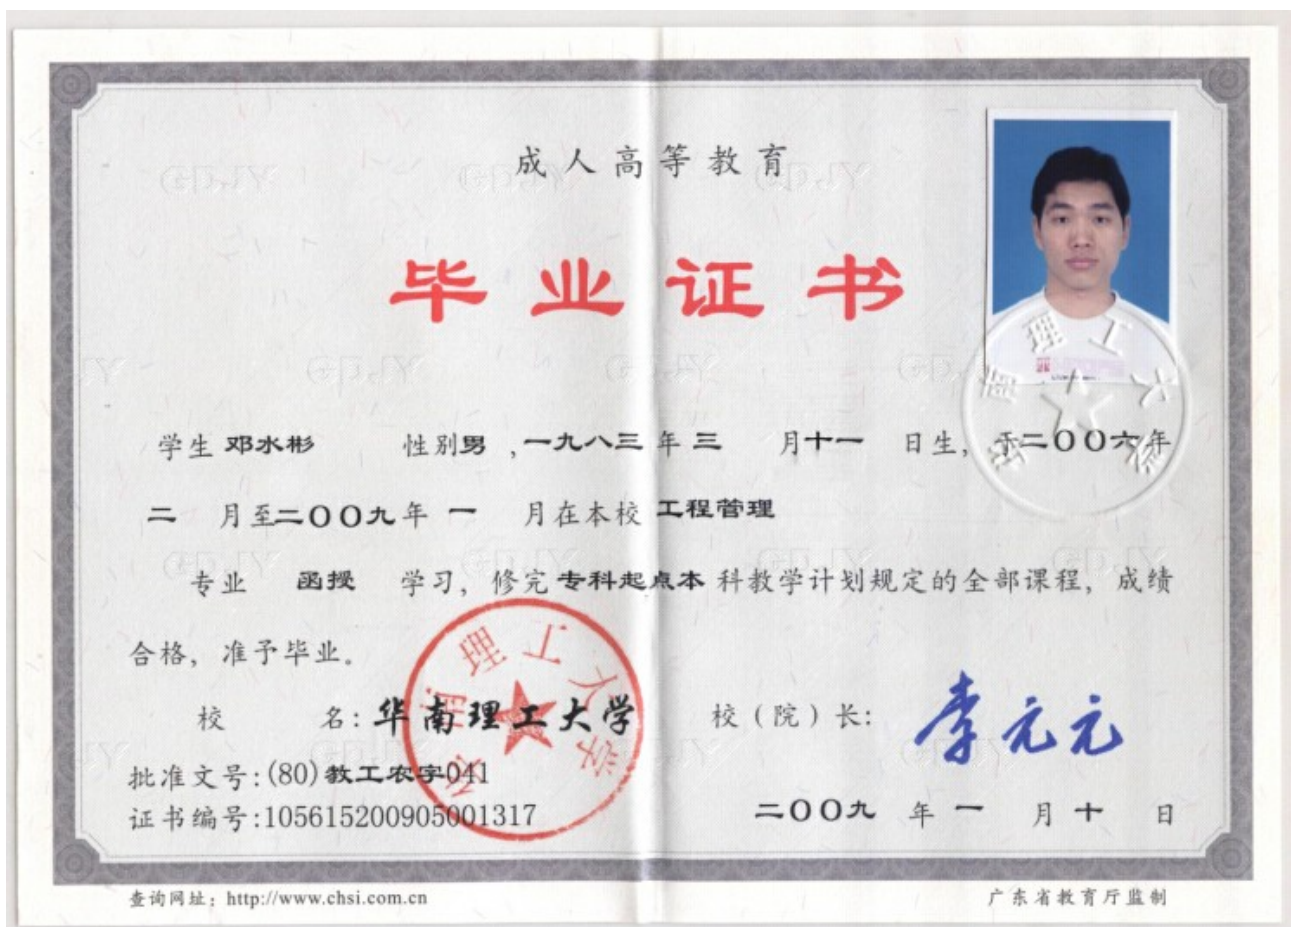 成人高等教育
毕业证书
学生 邓水彬 性别男,一九八三年三月十一日生,于二〇〇六年
二月至二〇〇九年一月在本校 工程管理
专业 函授 学习,修完专科起点本科教学计划规定的全部课程,成绩
合格,准予毕业。
校 名:华南理工大学 校(院)长:李元元
批准文号:(80)教工农字041
证书编号:105615200905001317
二〇〇九年一月十日
查询网址:http://www.chsi.com.cn 广东省教育厅监制
华南理工大学
华南理工大学